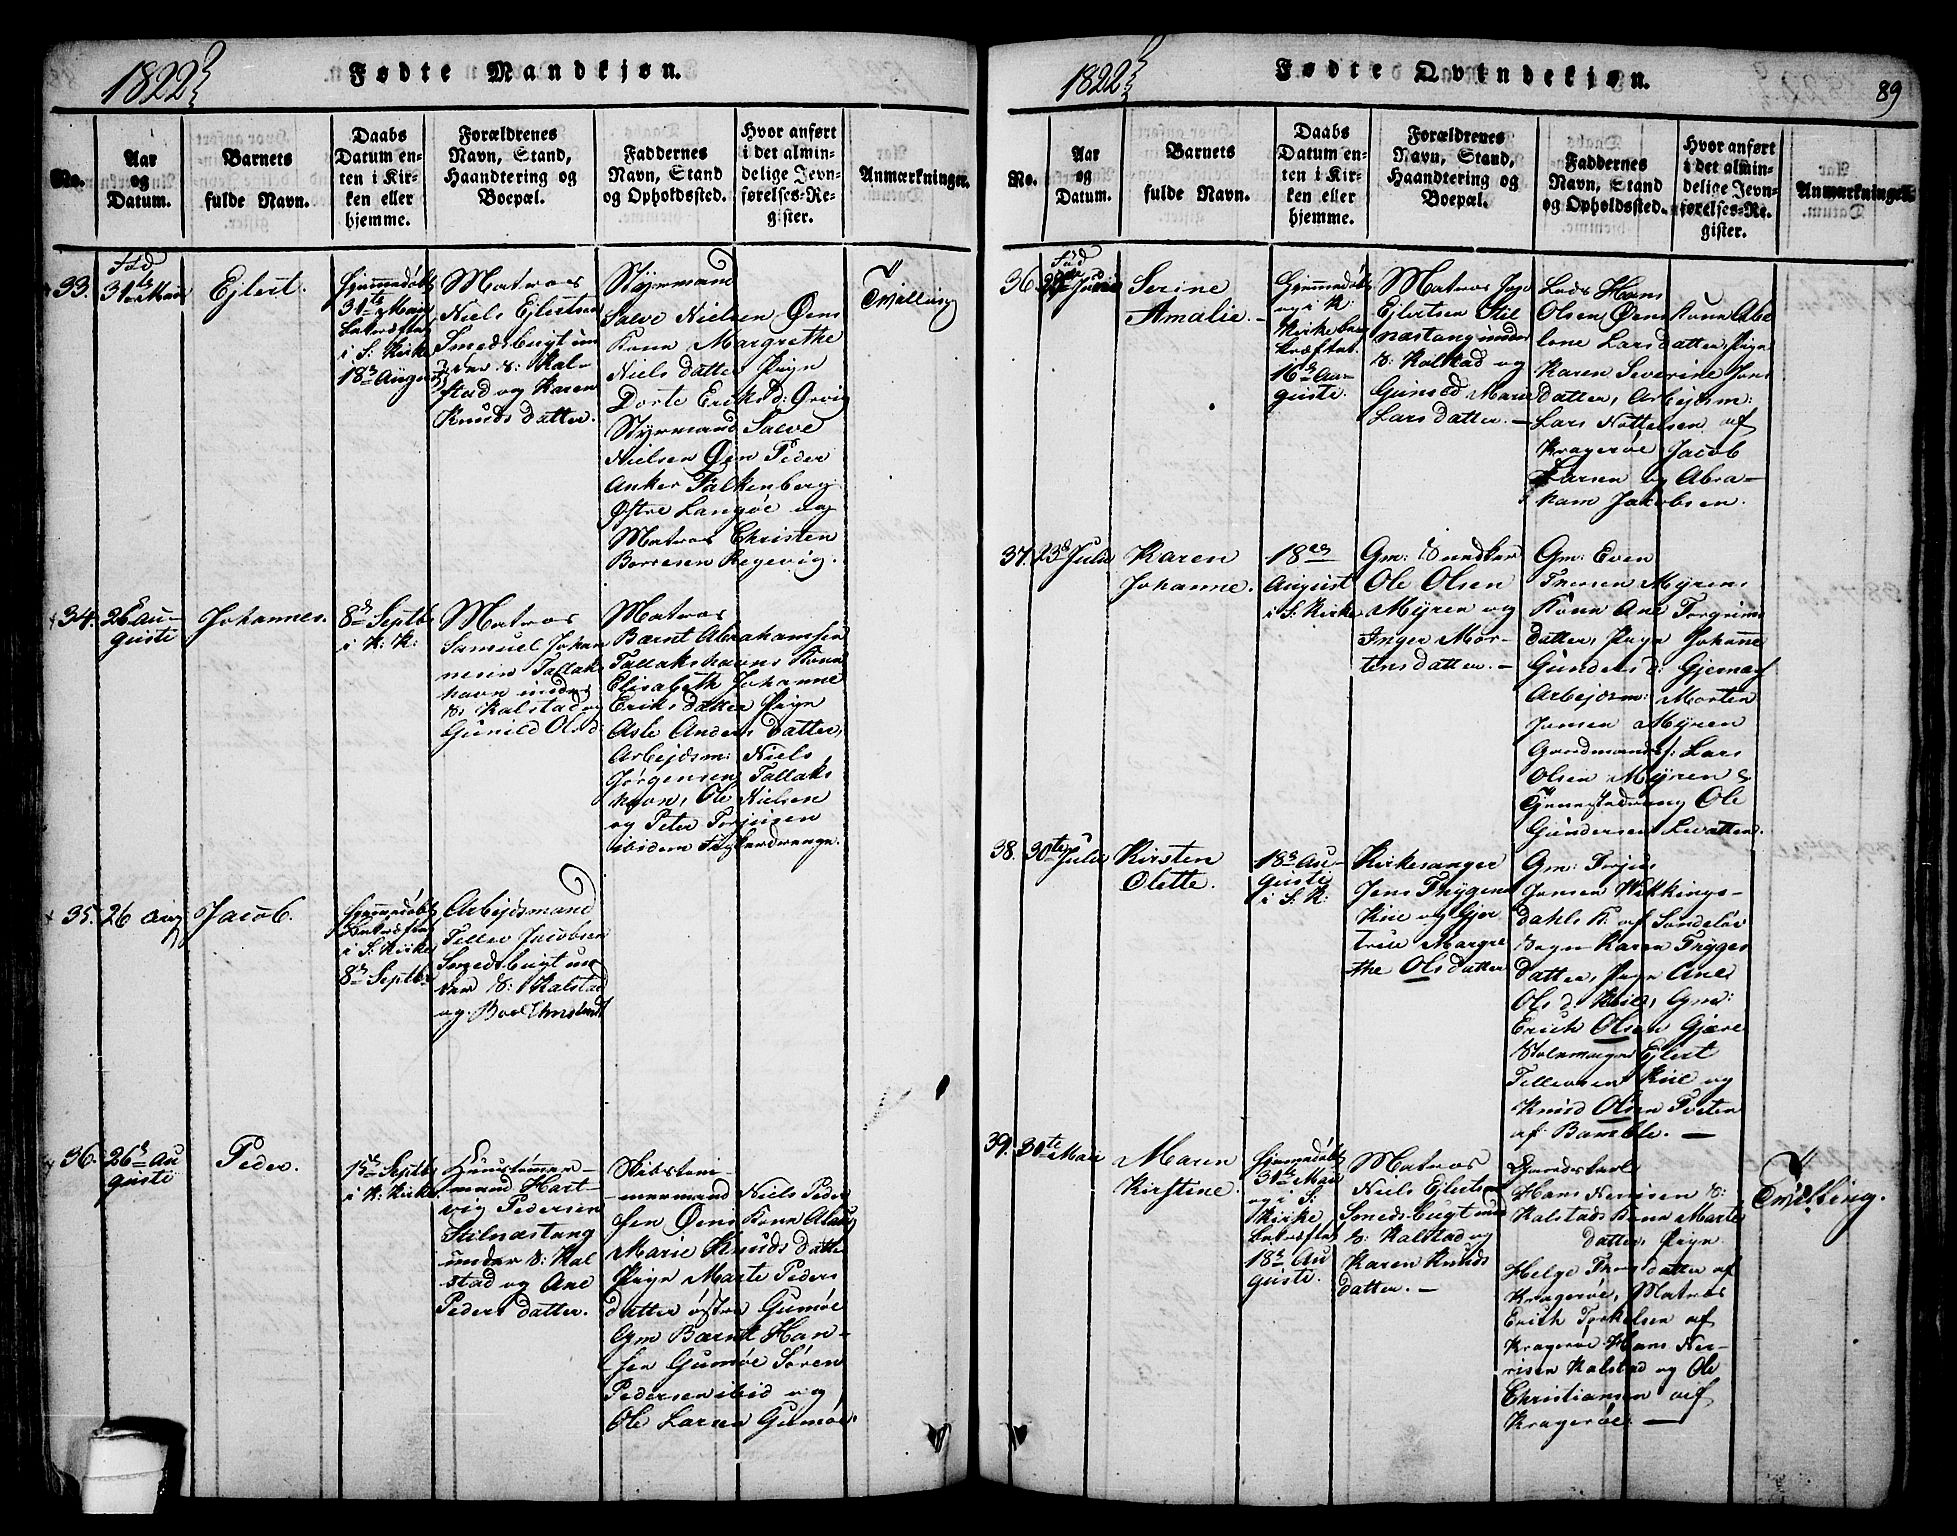 1822
Fødte Mandkjøn.
No.
Aar
og
Datum.
Barnets
fulde Navn.
Daabs
Datum en-
ten i Kir-
ken eller
hjemme.
Forældrenes
Navn, Stand,
Haandtering og
Boepæl.
Faddernes
Navn, Stand
og Opholdssted.
Hvor anført
i det almin-
delige Jevn-
førelses-Re-
gister.
Anmærkninger.
33.
Fød
31te Maii
Ejlert.
Hjemmedøbt
31te Maii
bekræftet
i S: Kirke
18de August
Matros
Niels Ejlertsen
Smedsbugt un
der S: Kal-
stad og Karen
Knudsdatter.
Styrmand
Salve Nielsen Øens
Kone Margrethe
Nielsdatter Pign
Dorte Eriksd:
Styrmand Salve
Nielsen Øen Peder
Anker Falkenberg
Østre Langøe og
Matros Christen
Borresen Regevig.
Tvilling
34.
26de Au-
gusti
Johannes.
8de Septb
i K: K:
Matros
Samuel Johan
nesen Tallaks
havn under
S: Kalstad og
Gunild Olsd
Matros
Bærnt Abrahamsen
Tallakshavns Kone
Elisabeth Johanne
Eriksdatter Pign
Asle Andersdatter,
Arbejdsm: Niels
Jørgensen Tallaks
havn, Ole Nielsen
og Peter Torjusen
ibidem
35.
26 Aug
Jacob.
Hjemmedøbt
bekræftet
i S: Kirke
8de Septbr
Arbejdsmand
Tellev Jacobsen
Smedsbugt un
der S: Kalstad
og
36.
26de Au
gusti
Peder.
15de Septb
i K: Kirke
Huustømer-
mand Hart-
vig Pedersen
Stilnæstang
under S: Kal
stad og Ane
Pedersdatter.
Skibstøm-
mermand
Niels Peder
sen Øens Kone
Marie Knudsdatter
Pign Marte Peders
datter østre Gumøe
Gm Bærnt Han-
sen Gumøe Søren
Pedersen ibid og
Ole Larsen Gumøe.
1822
Fødte Qvindekjøn.
89
No.
Aar
og
Datum.
Barnets
fulde Navn.
Daabs
Datum en-
ten i Kir-
ken eller
hjemme.
Forældrenes
Navn, Stand,
Haandtering og
Boepæl.
Faddernes
Navn, Stand
og Opholdssted.
Hvor anført
i det almin-
delige Jevn-
førelses-Re-
gister.
Anmærkninger.
36
Fød
Serine
Amalie.
Hjemmedøbt
og i K:
Kirke be-
kræftet
16de Au-
gusti.
Matros
Ejlertsen Stil
næstang under
S: Kalstad og
Gunild Marie
Larsdatter.
Lods Hans
Olsen Øens Kone Abe
lone Larsdatter, Pign
Karen Severine Jens
datter, Arbejdsm:
Lars Nottelsen af
Kragerøe Jacob
Larsen og Abra-
ham Jakobsen.
37.
23de Julii
Karen
Johanne.
18de
August
i S: Kirke
Gm:
Ole Olsen
Myren og
Inger Mor-
tensdatter.
Gm: Even
Myrens
Kone Ane Torgrims
datter, Pign Johanne
Gundersd:
Arbejdsm: Morten
Jensen Myren
Lars
Olsen Myren &
Ole
Gundersen
38.
30te Julii
Kirsten
Olette.
18de Au-
gusti
i S: K:
Kirkesanger
Jens Thygesen
Kiil og Gjer
trud Margre
the Olsdatter
Gm: Torjus
Jensen Wikkings-
dahls K: af Søndeløv
Sogn Karen Thyges
datter, Pign Ane
Olsd: Kiil, Gm:
Erich Olsen Gjære
Skolemager Ejlert
Tellevsen Kiil og
Knud Olsen
af Bamble.
39.
31te Maii
Maren
Kirstine.
Hjemmedøbt
31te Maii
og i S:
Kirke
bekræftet
18de Au
gusti.
Matros
Niels Ejlerts:
Smedsbugt und
S: Kalstad og
Karen Knuds
datter.
Hans S:
Kalstads Kone Marte
datter, Pign
Helge datter af
Kragerøe, Matros
Erich Torkelsen af
Kragerøe Hans
Kalstad og Ole
Christiansen af
Kragerøe.
Tvilling.